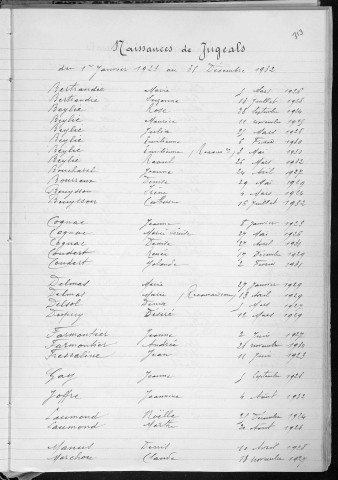 Naissances de Jugeals
du 1er Janvier 1921 au 31 Décembre 1932
Bertrandre Marie Mars 1926
Bertrandre Suzanne 18 Juillet 1928
Beylie Rose 28 Septembre 1924
Beylie Maurice 11 novembre 1925
Beylie Julia Mars 1928
Beylie Emilienne 6 Février 1930
Beylie Emilienne (Reconn) 2 Mai 1931
Beylie Raoul 26 Mars 1932
Boucharel Jeanne 24 Avril 1927
Denise 29 Mai 1929
Bouysson Irène 4 Mars 1924
Bouysson Catherine 16 Juillet 1932
Cognac Jeanne 8 Janvier 1923
Cognac Marie 24 Mai 1926
Cognac Denise 27 Avril 1931
Coudert Renée 17 Décembre 1929
Coudert Yolande 2 Février 1931
Delmas Marie 27 Janvier 1929
Delmas Marie (Reconnaissance) 13 Avril 1929
Delsol Denise Mars
Dupuy Désiré 12 Mars 1929
Farmontier Jeanne 2 Juin 1927
Farmontier Andréa 28 novembre 1930
Frescaline Jean 11 Juin 1923
Gay Jeanne Septembre 1921
Joffre Jeanne 6 Août 1932
Laumond Noëlle 25 Décembre 1924
Laumond Marthe 30 Août 1926
Denis 10 Avril 1928
Marchou Claude 13 novembre